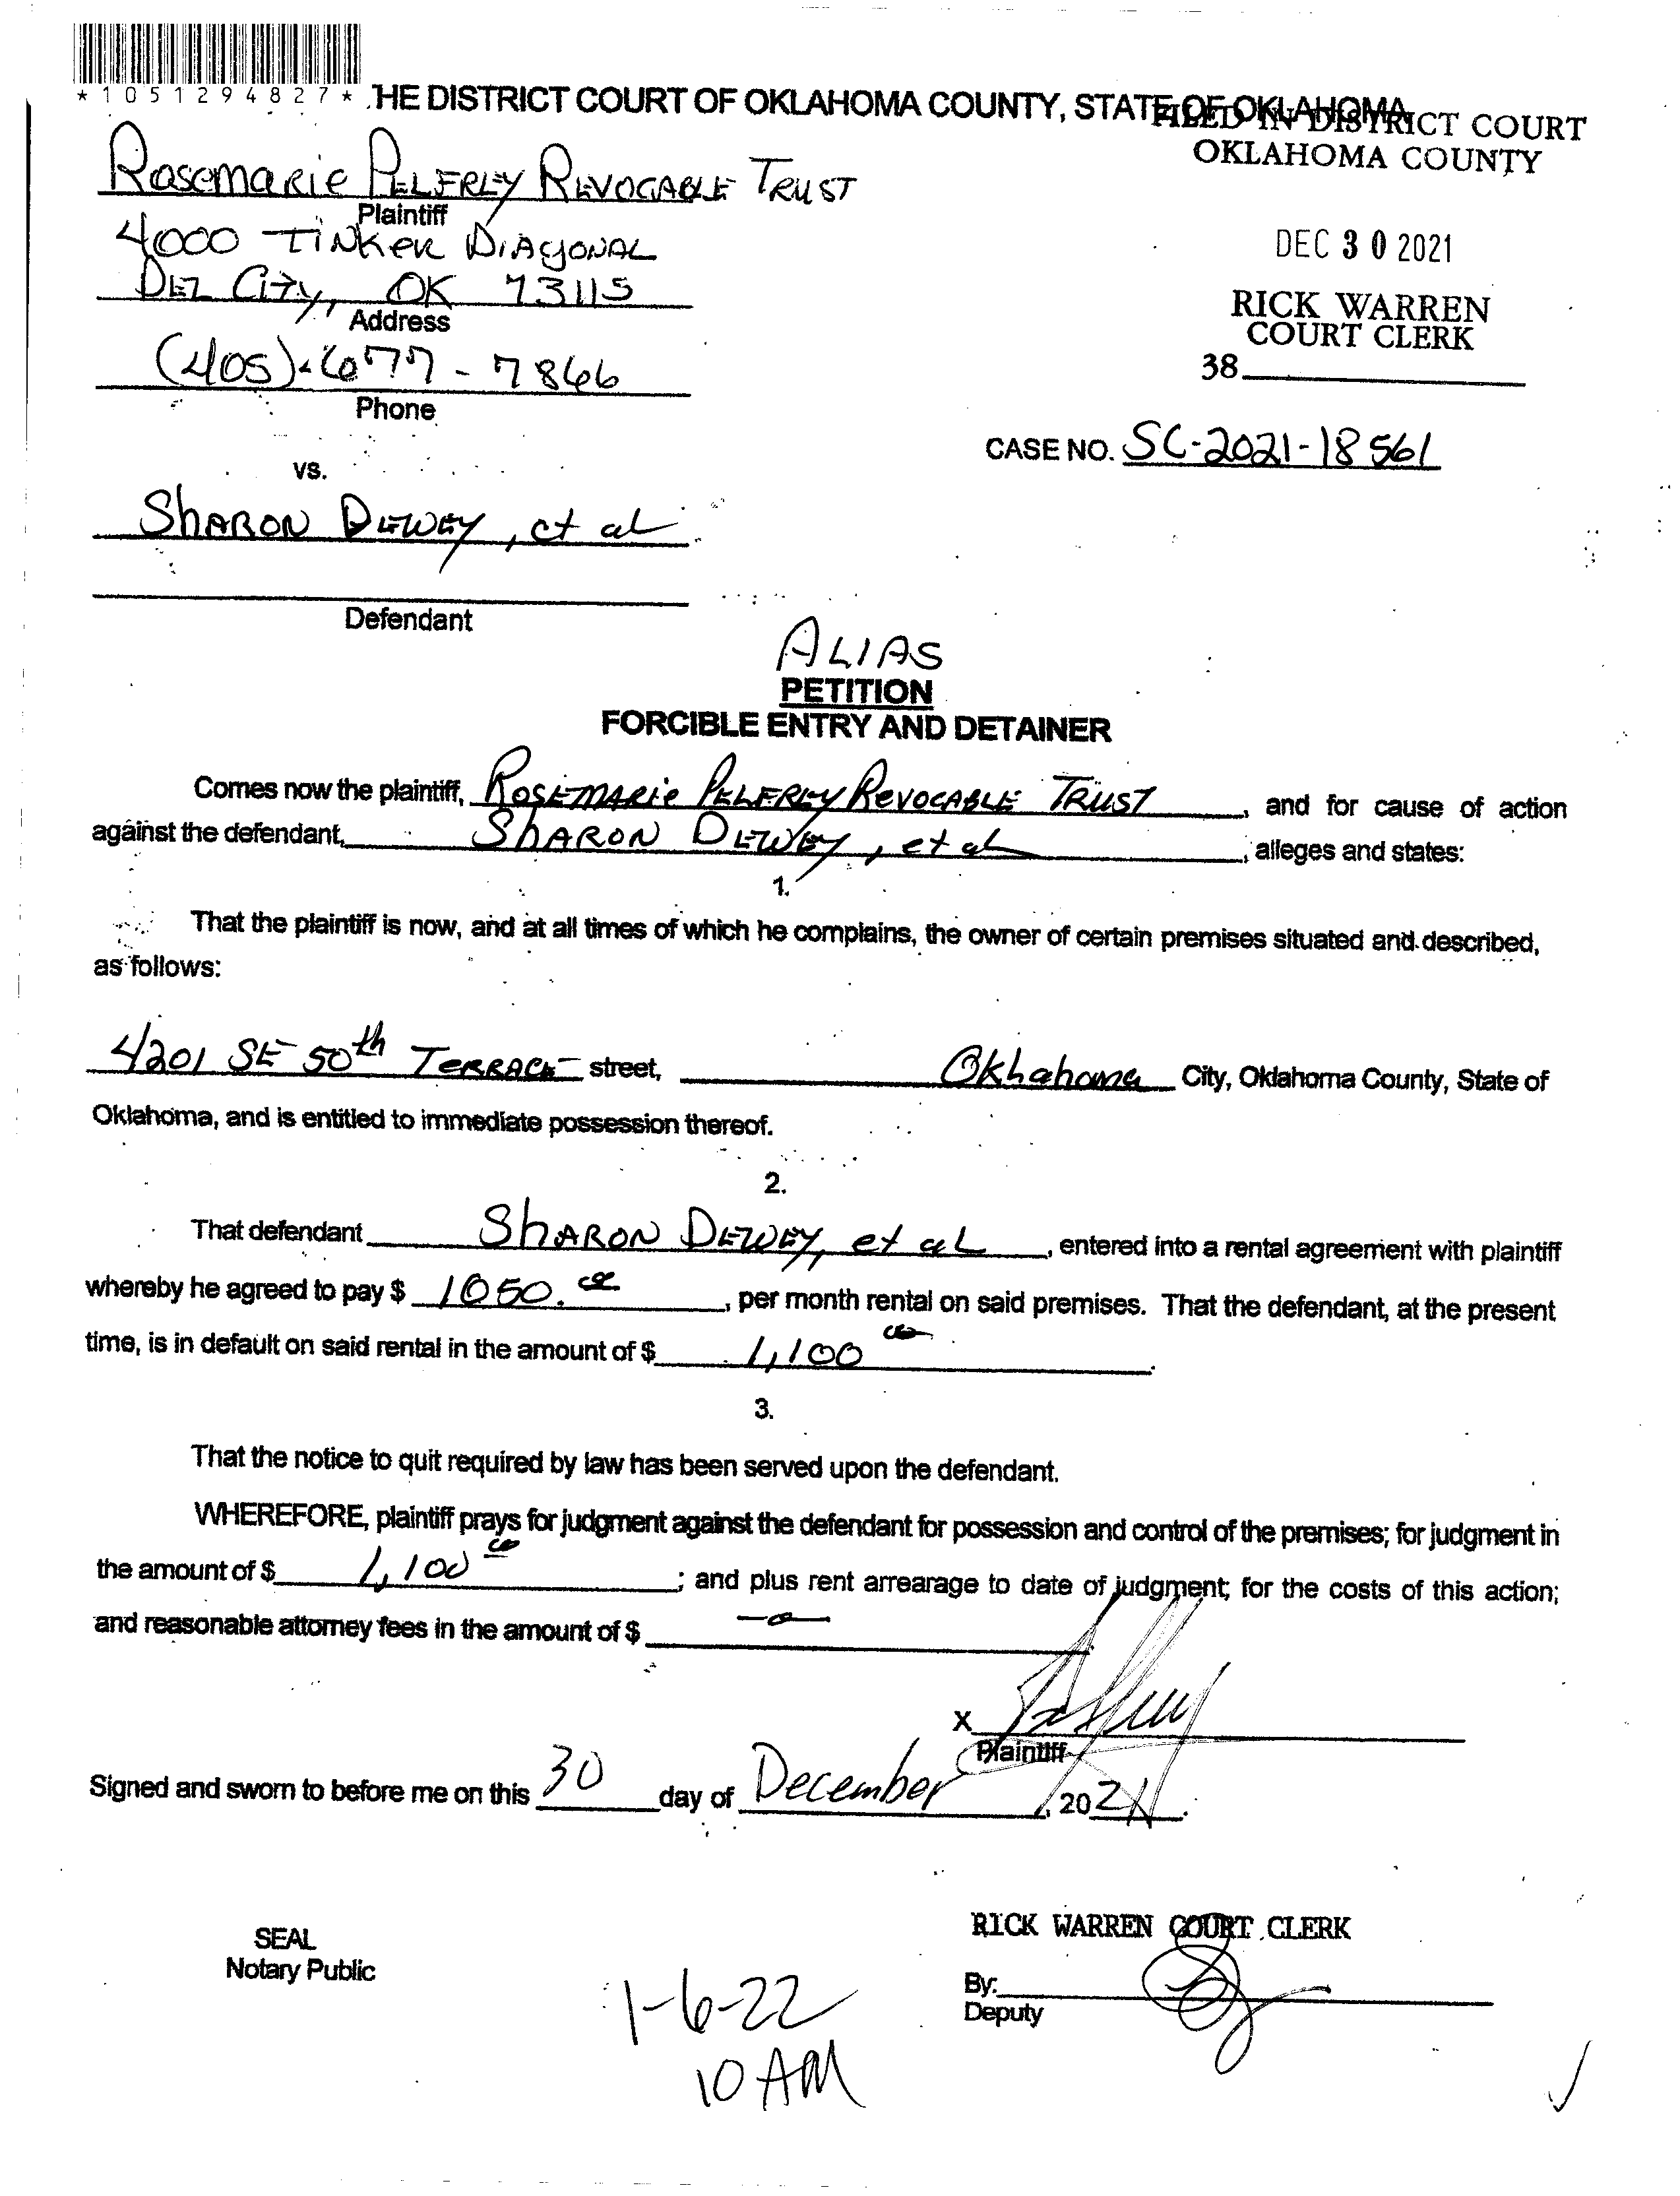 *1051294827* THE DISTRICT COURT OF OKLAHOMA COUNTY, STATE OF OKLAHOMA
FILED IN DISTRICT COURT
OKLAHOMA COUNTY
Rosemarie Pelfrey Revocable Trust
Plaintiff
4000 Tinker Diagonal
Del City, OK 73115
Address
DEC 30 2021
RICK WARREN
COURT CLERK
38
(405)-677-7866
Phone
CASE NO. SC-2021-18561
vs.
Sharon Dewey, et al
Defendant
ALIAS
PETITION
FORCIBLE ENTRY AND DETAINER
Comes now the plaintiff, Rosemarie Pelfrey Revocable Trust, and for cause of action
against the defendant, Sharon Dewey, et al, alleges and states:
1.
That the plaintiff is now, and at all times of which he complains, the owner of certain premises situated and described,
as follows:
4201 SE 50th Terrace street, Oklahoma City, Oklahoma County, State of
Oklahoma, and is entitled to immediate possession thereof.
2.
That defendant Sharon Dewey, et al, entered into a rental agreement with plaintiff
whereby he agreed to pay $ 1050.00, per month rental on said premises. That the defendant, at the present
time, is in default on said rental in the amount of $ 1,100 00.
3.
That the notice to quit required by law has been served upon the defendant.
WHEREFORE, plaintiff prays for judgment against the defendant for possession and control of the premises; for judgment in
the amount of $ 1,100 00; and plus rent arrearage to date of judgment; for the costs of this action;
and reasonable attorney fees in the amount of $ -0-
X
Plaintiff
Signed and sworn to before me on this 30 day of December, 2021.
SEAL
Notary Public
RICK WARREN COURT CLERK
By:
Deputy
1-6-22
10 AM